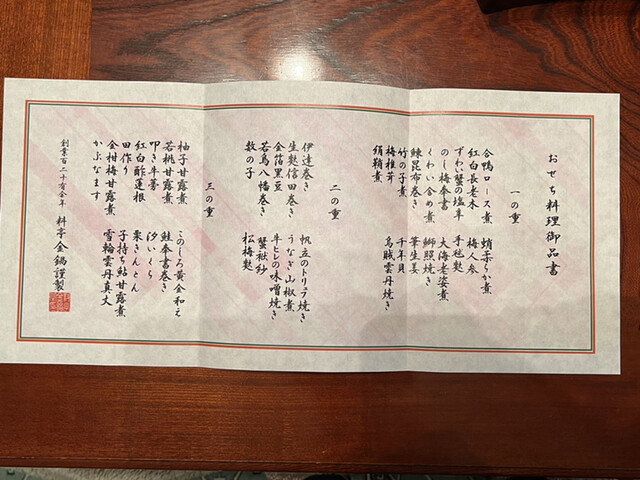 おせち料理御品書
一の重
合鴨ロース煮 蛸柔らか煮
紅白長老木 梅人参
ずわい蟹の塩辛 手毬麩
のし梅奉書 大海老婆煮
くわい含め煮 鰤照焼き
鰊昆布巻き 筆生姜
竹の子煮 千年貝
梅椎茸 烏賊雲丹焼き
絹鞘煮
二の重
伊達巻き 帆立のトリュフ焼き
生麩信田巻き うなぎ山椒煮
金箔黒豆 牛ヒレの味噌焼き
若鳥八幡巻き 蟹袱紗
数の子 松梅麩
三の重
柚子甘露煮 このしろ黄金和え
若桃甘露煮 鮭奉書巻き
叩き牛蒡 汐いくら
紅白酢蓮根 栗きんとん
田作り 子持ち鮎甘露煮
金柑梅甘露煮 雪輪雲丹真丈
かぶなます
創業百二十有余年 料亭 金鍋謹製